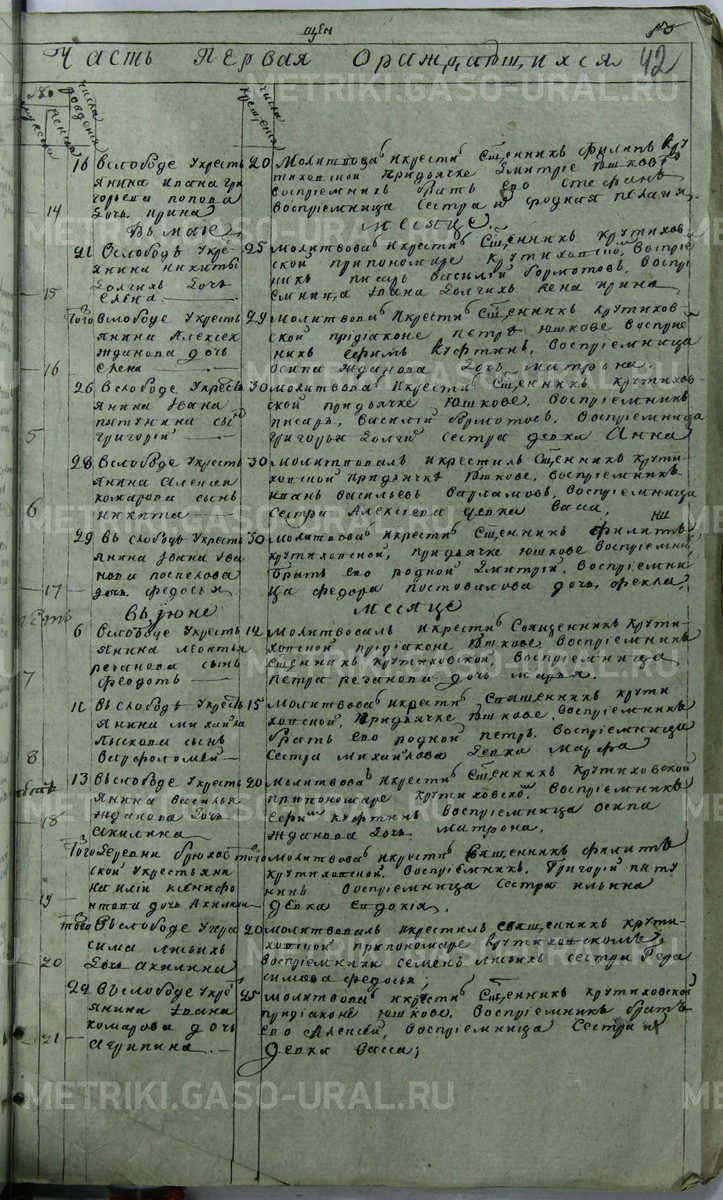 Часть Первая Ораждающихся 42
числа рождения
числа крещения
16 Вслободе Укресть
янина Ивана Гри
горьева попова
14 дочь Ирина
20 Молитвовалъ Икрестилъ Сщенникъ Филипъ Кру
тиховской Придьячке Дмитріе Юшкове
Воспріемникъ братъ Его Стефанъ
Воспріемница Сестра и родная пелагия.
Въ маіе Месяце.
21 Вслободе Укре
янина Никиты
15 Долгихъ Дочь
Елена
25 Молитвовалъ Икрестилъ Сщенникъ Крутихов
ской припономаре Крутиховской, Воспріе
никъ писарь Василій Бормотовъ, Воспрі
емница Ивана Долгихъ Жена Ирина
Того Вслободе Укресть
янина Алексея
Жданова дочь
16 Елена
29 Молитвовалъ Икрестилъ Сщенникъ Крутихов
ской придіаконе Петре Юшкове Воспріе
никъ Ефимъ Куфтинъ, Воспріемница
Осипа Жданова Дочь Матрона.
26 Вслободе Укресть
янина Ивана
5 пятунина сынъ
Григорій
30 Молитвовалъ Икрестилъ Сщенникъ Крутихов
ской придьячке Юшкове, Воспріемникъ
писарь, Василій Бормотовъ, Воспріемница
Григорья Долгих Сестра девка Анна
28 Вслободе Укресть
янина Алексея
6 комарова сынъ
Никита
30 Молитвовалъ Икрестилъ Сщенникъ Крути
ховской Придьячке Юшкове, Воспріемникъ
Иванъ Васильевъ Варламовъ, Воспріемница
Сестра Алексеева девка Васса,
29 Въ слободе Укресть
янина Ивана Ива
нова поспехова
17 дочь Федосья
30 Молитвовалъ Икрестилъ Сщенникъ Филипъ
Крутиховской, придьячке Юшкове Воспріемникъ,
Братъ Его родной Дмитрій, Воспріемни
ца Федора постовалова дочь, Фекла,
Въ іюне Месяце
6 Вслободе Укресть
янина Леонтья
7 резанова сынъ
Феодотъ
14 Молитвовалъ Икрестилъ Священникъ Крути
ховской придіаконе Юшкове, Воспріемникъ
Сщенникъ Крутиховской, Воспріемница
Петра резанова дочь Марья.
11 Въ слободе Укресть
янина Михаила
Лыскова сынъ
8 Варфоломей
15 Молитвовалъ Икрестилъ Священникъ Крути
ховской, Придьячке Юшкове, Воспріемникъ
братъ Его родной петръ, Воспріемница
Сестра Михайлова Девка Марфа
13 Въслободе Укресть
янина Василья
18 Жданова Дочь
Акилина
20 Молитвовалъ Икрестилъ Сщенникъ Крутиховской
припономаре Крутиховской, Воспріемникъ
Ефимъ Куфтинъ Воспріемница Осипа
Жданова Дочь Матрона,
Того Деревни Брюхов
ской Укрестьяни
19 на Иліи Ксенифо
нтова дочь Акилина
того Молитвовалъ Икрестилъ Священникъ Филипъ
Крутиховской, Воспріемникъ, Григорій пяту
нинъ Воспріемница Сестра Ильина
девка Евдокія,
того Въ слободе Угера
сима Лысыхъ
20 Дочь Акилина
20 Молитвовалъ Икрестилъ Священникъ Крути
ховской припономаре Крутиховскомъ,
Воспріемники Семенъ Лысыхъ Сестра Гера
симова Федосья;
24 Въслободе Укре
янина Ивана
комарова дочь
21 Агрипина
25 Молитвовалъ Икрестилъ Сщенникъ Крутиховской
придіаконе Юшкове, Воспріемникъ братъ
Его Алексей, Воспріемница Сестра
Девка Васса;
METRIKI.GASO-URAL.RU